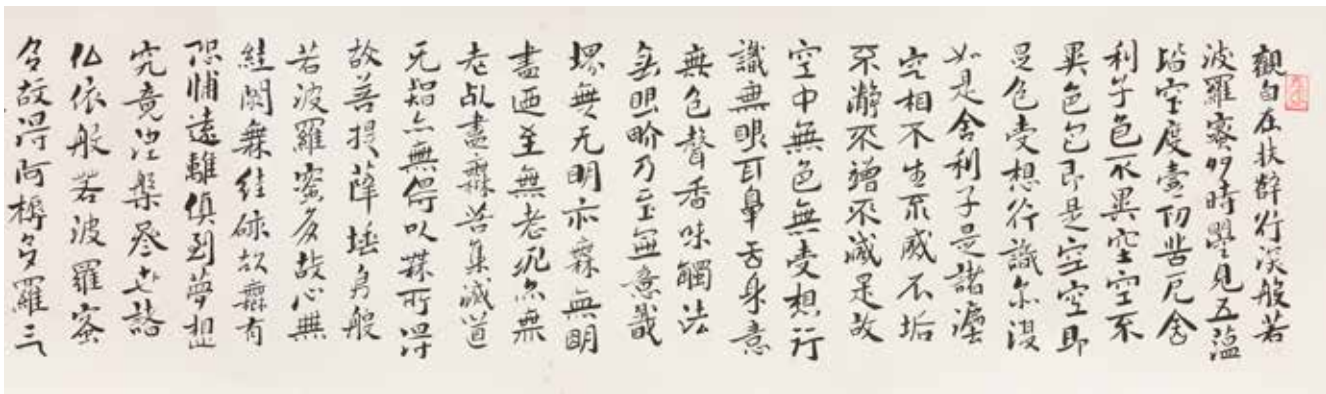 觀自在扶薛行深般若
波羅蜜多時曌見五蕰
皆空度壹切苦厄舍
利子色不異空空不
異色色即是空空即
是色受想行識尒復
如是舍利子是諸灋
空相不生不滅不垢
不瀞不增不減是故
空中無色無受想行
識無眼耳鼻舌身意
無色聲香味觸法
無眼畍乃至無意識
堺無无明亦無無明
盡迺至無老死亦無
老死盡無苦集滅道
无智亦無得以無所得
故菩提薩埵為般
若波羅蜜多故心無
絓閡無絓碍故無有
恐怖遠離傎到夢想
究竟涅槃叁世諸
仏依般若波羅蜜
多故得阿耨多羅三